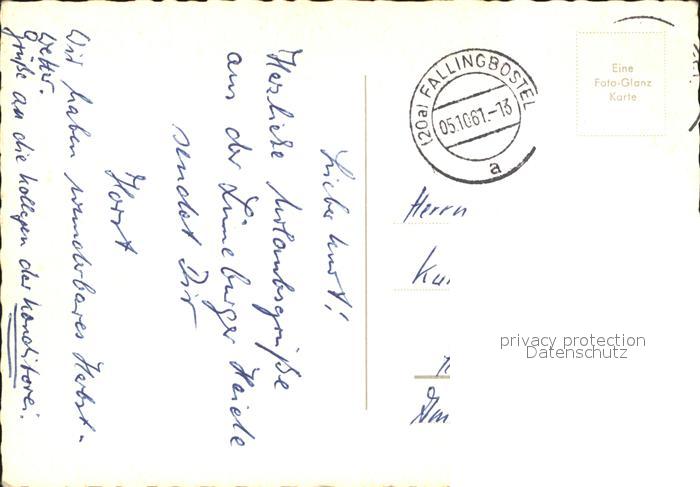 Lieber Kurt!
Herzliche Urlaubsgrüße
aus der Lüneburger Heide
sendet Dir
Horst
Wir haben wunderbares Herbst-
wetter.
Grüße an die Kollegen der Konditorei.
(20a) FALLINGBOSTEL
05.10.61.-13
a
Eine
Foto-Glanz
Karte
Herrn
privacy protection
Datenschutz